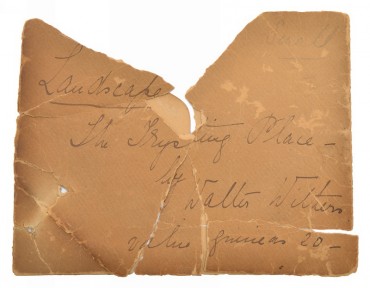 Landscape
The Trysting Place –
by
Walter Withers
value guineas 20 –